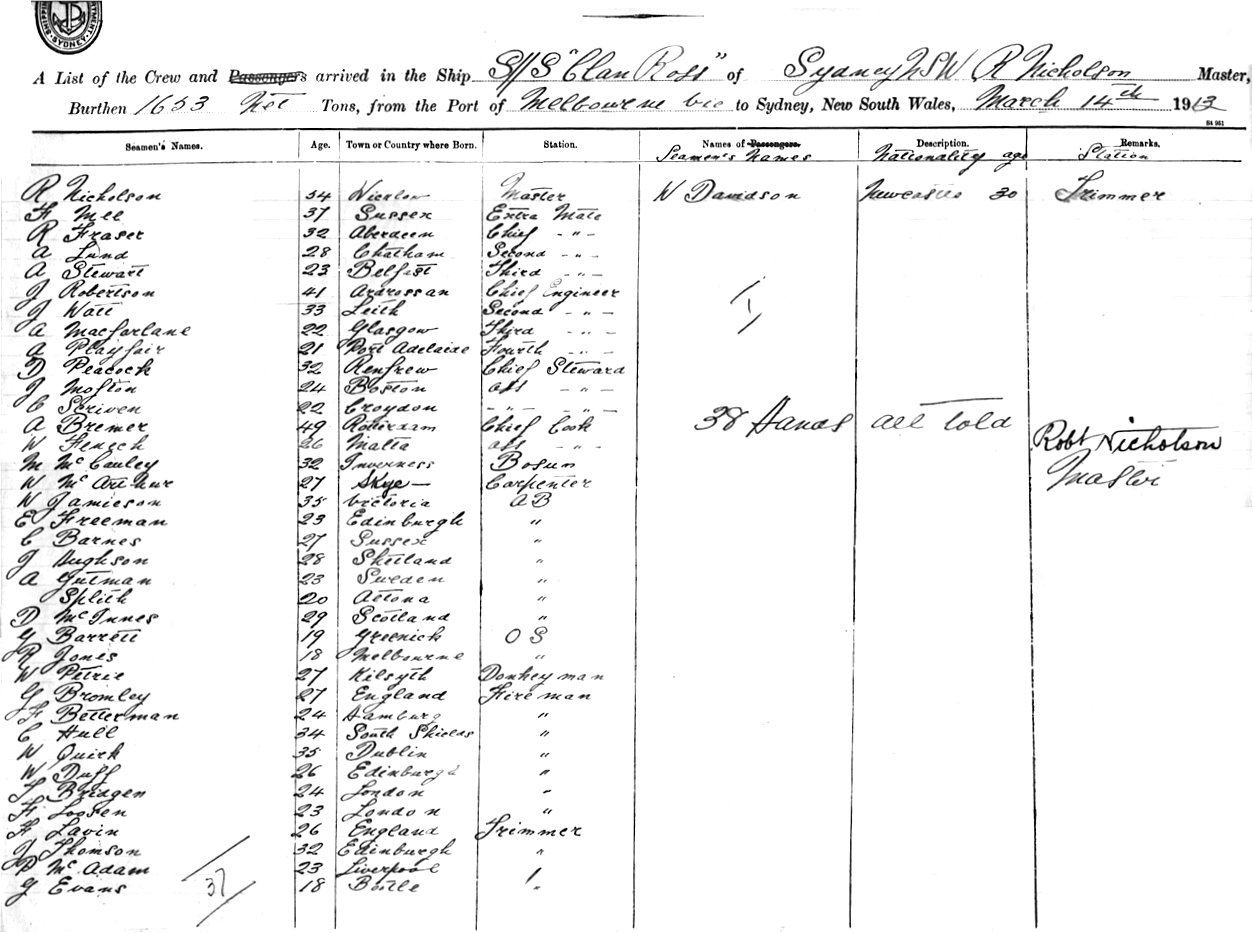 DEPARTMENT. SYDNEY. SHIPPING
A List of the Crew and Passengers arrived in the Ship S/S "Clan Ross" of Sydney NSW R Nicholson Master,
Burthen 1653 Net Tons, from the Port of Melbourne Vic to Sydney, New South Wales, March 14th 1913
84 951
Seamen's Names. Age. Town or Country where Born. Station. Names of Passengers. Description. Remarks.
Seamen's Names Nationality age Station
R Nicholson 54 Wicklow Master W Davidson Newcastle 30 Trimmer
F Mee 37 Sussex Extra Mate
R Fraser 32 Aberdeen Chief - " -
A Lund 28 Chatham Second - " -
A Stewart 23 Belfast Third - " -
J Robertson 41 Ardrossan Chief Engineer
J Watt 33 Leith Second - " -
A Macfarlane 22 Glasgow Third - " -
A Playfair 21 Port Adelaide Fourth - " -
D Peacock 32 Renfrew Chief Steward
J Mofton 24 Boston ass - " -
C Scriven 22 Croydon - " - - " -
A Bremer 49 Rotterdam Chief Cook 38 Hands all told
W Fenech 26 Malta ass - " - Robt Nicholson
M McCauley 32 Inverness Bosun Master
W McArthur 27 Skye — Carpenter
W Jamieson 35 Victoria AB
E Freeman 23 Edinburgh "
C Barnes 27 Sussex "
J Hughson 28 Shetland "
A Gutman 23 Sweden "
Splith 20 Altona "
D McInnes 29 Scotland "
G Barrett 19 Greenick OS
R Jones 18 Melbourne "
W Petrie 27 Kilsyth Donkeyman
G Bromley 27 England Fireman
F Betterman 24 Hamburg "
C Hull 34 South Shields "
W Quirk 35 Dublin "
W Duff 26 Edinburgh "
T Bridgen 24 London "
F Loosen 23 London "
F Lavin 26 England Trimmer
J Thomson 32 Edinburgh "
P McAdam 23 Liverpool "
G Evans 18 Bootle "
37